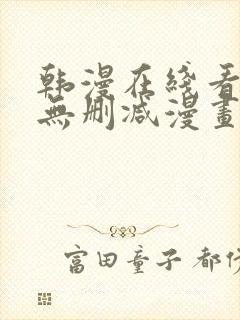 韩漫在綫看
無删减漫畫
富田童子 都伏